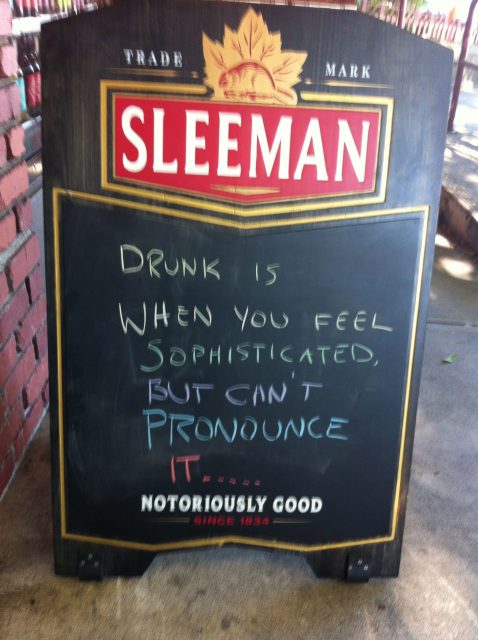 TRADE MARK
SLEEMAN
DRUNK IS
WHEN YOU FEEL
SOPHISTICATED,
BUT CAN'T
PRONOUNCE
IT.....
NOTORIOUSLY GOOD
SINCE 1834